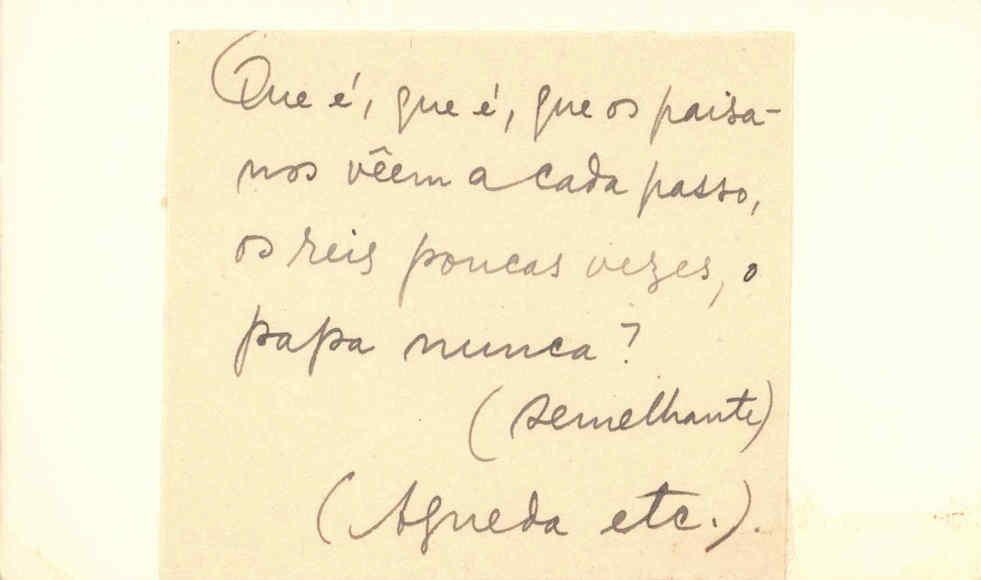 (Que é, que é, que os paisa-
nos vêem a cada passo,
os reis poucas vezes, o
papa nunca?
(semelhante)
(Agueda etc.).